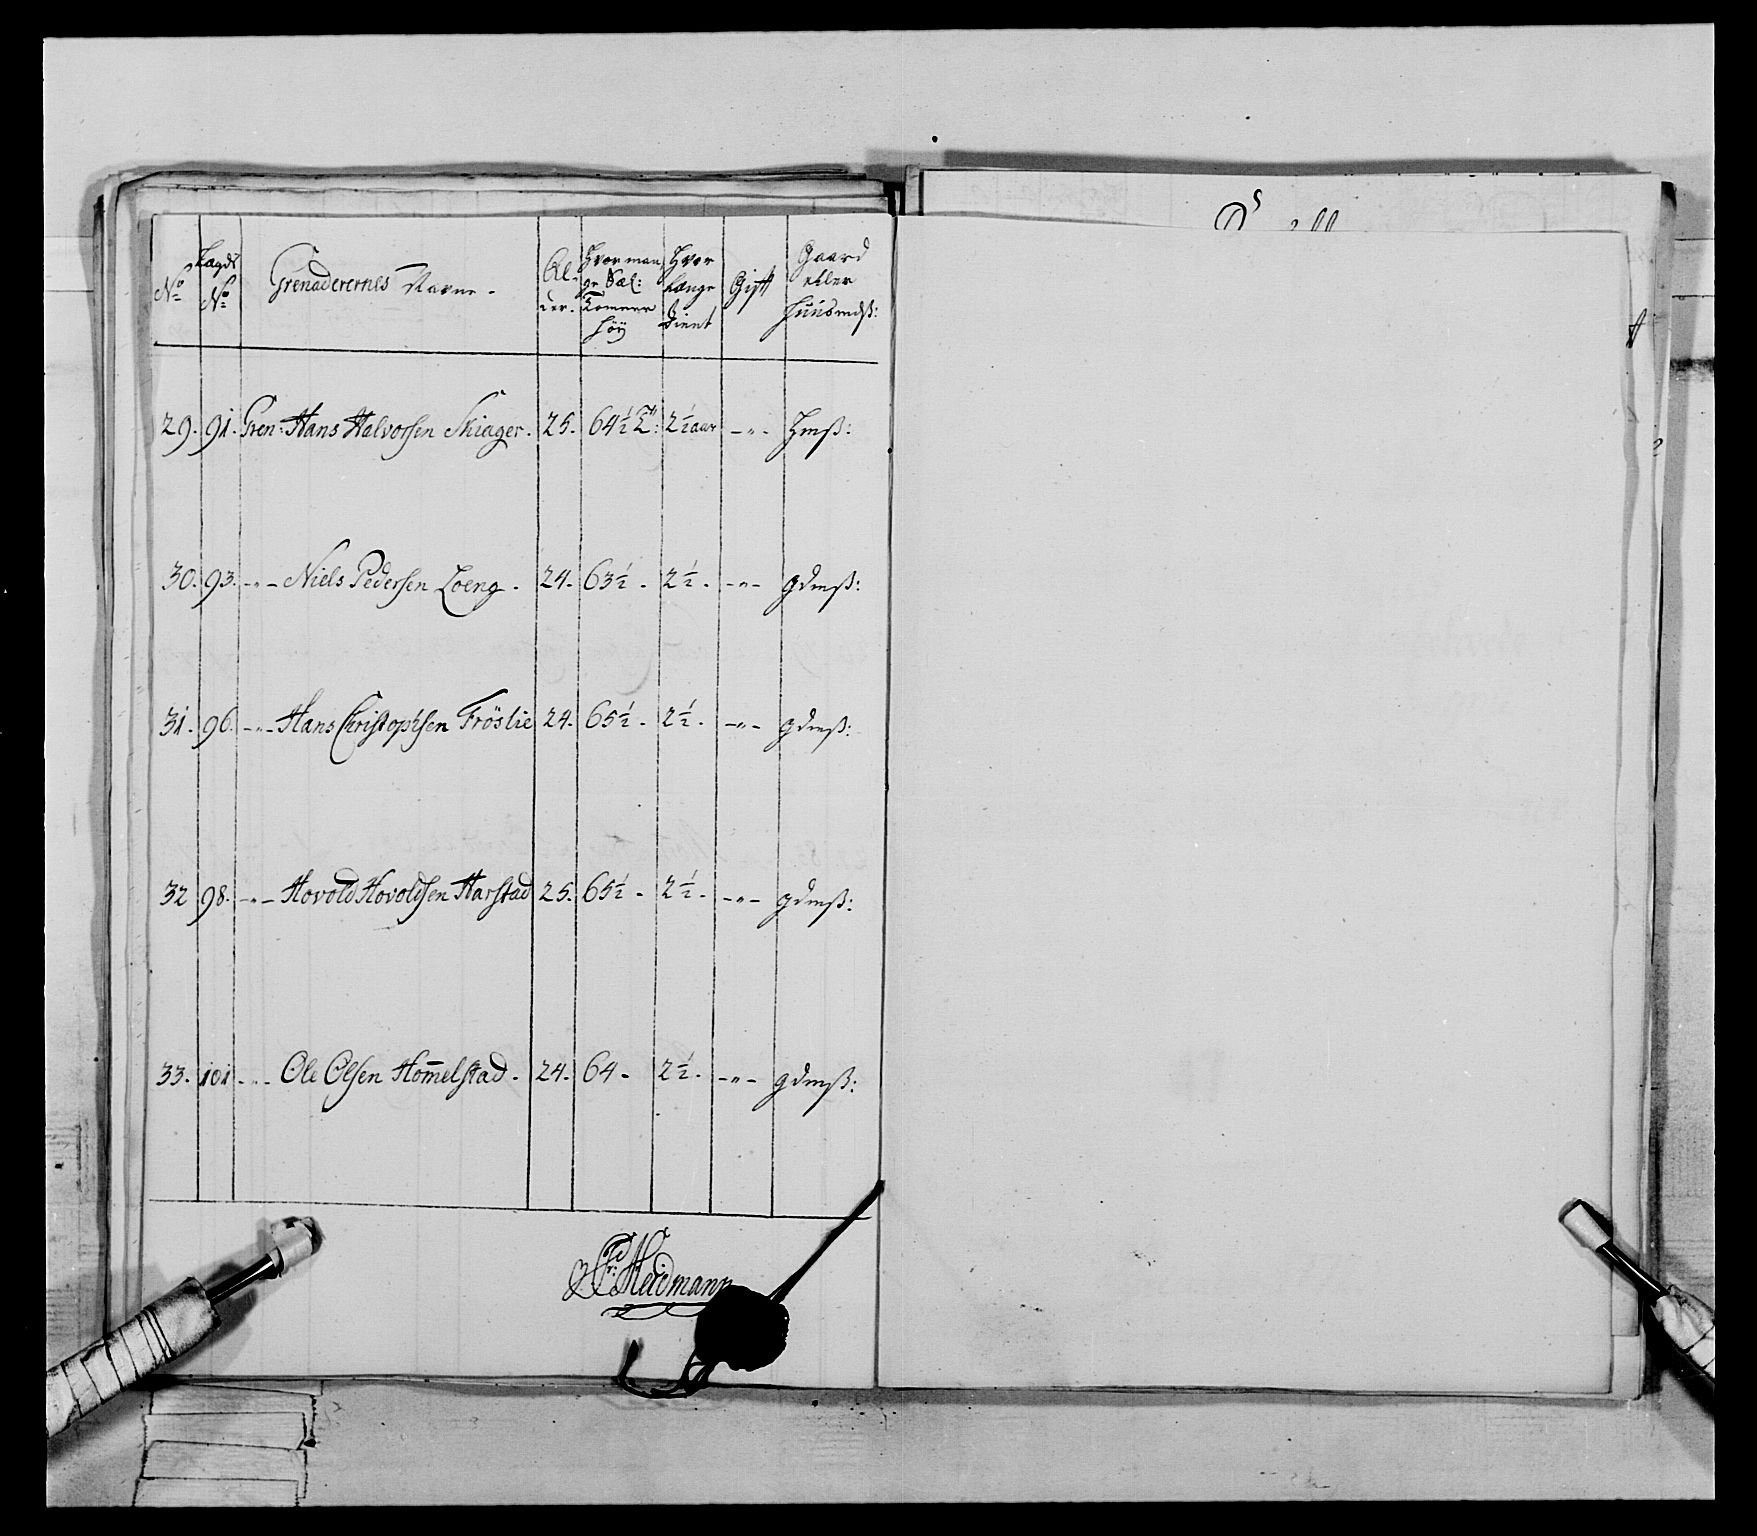 No Lægds No Grenaderernes Navne - Al- der. Hvor man- ge Sæl: Tommer Höÿ Hvor længe tient Gift Gaard eller Huusmdß:
29. 91. Gren: Hans Halvorsen Skiager. 25. 64½ T: 2½ aar -"- Hmß:
30. 93. -"- Niels Pedersen Loeng - 24. 63½ - 2½ - -"- gdmß:
31. 96. -"- Hans Christophsen Fröslie 24. 65½ - 2½ - -"- gdmß:
32 98. -"- Hovold Hovoldsen Harstad 25. 65½ - 2½ - -"- gdmß:
33. 101 -"- Ole Olsen Hom̅elstad - 24. 64 - 2½ - -"- gdmß:
Heidmann